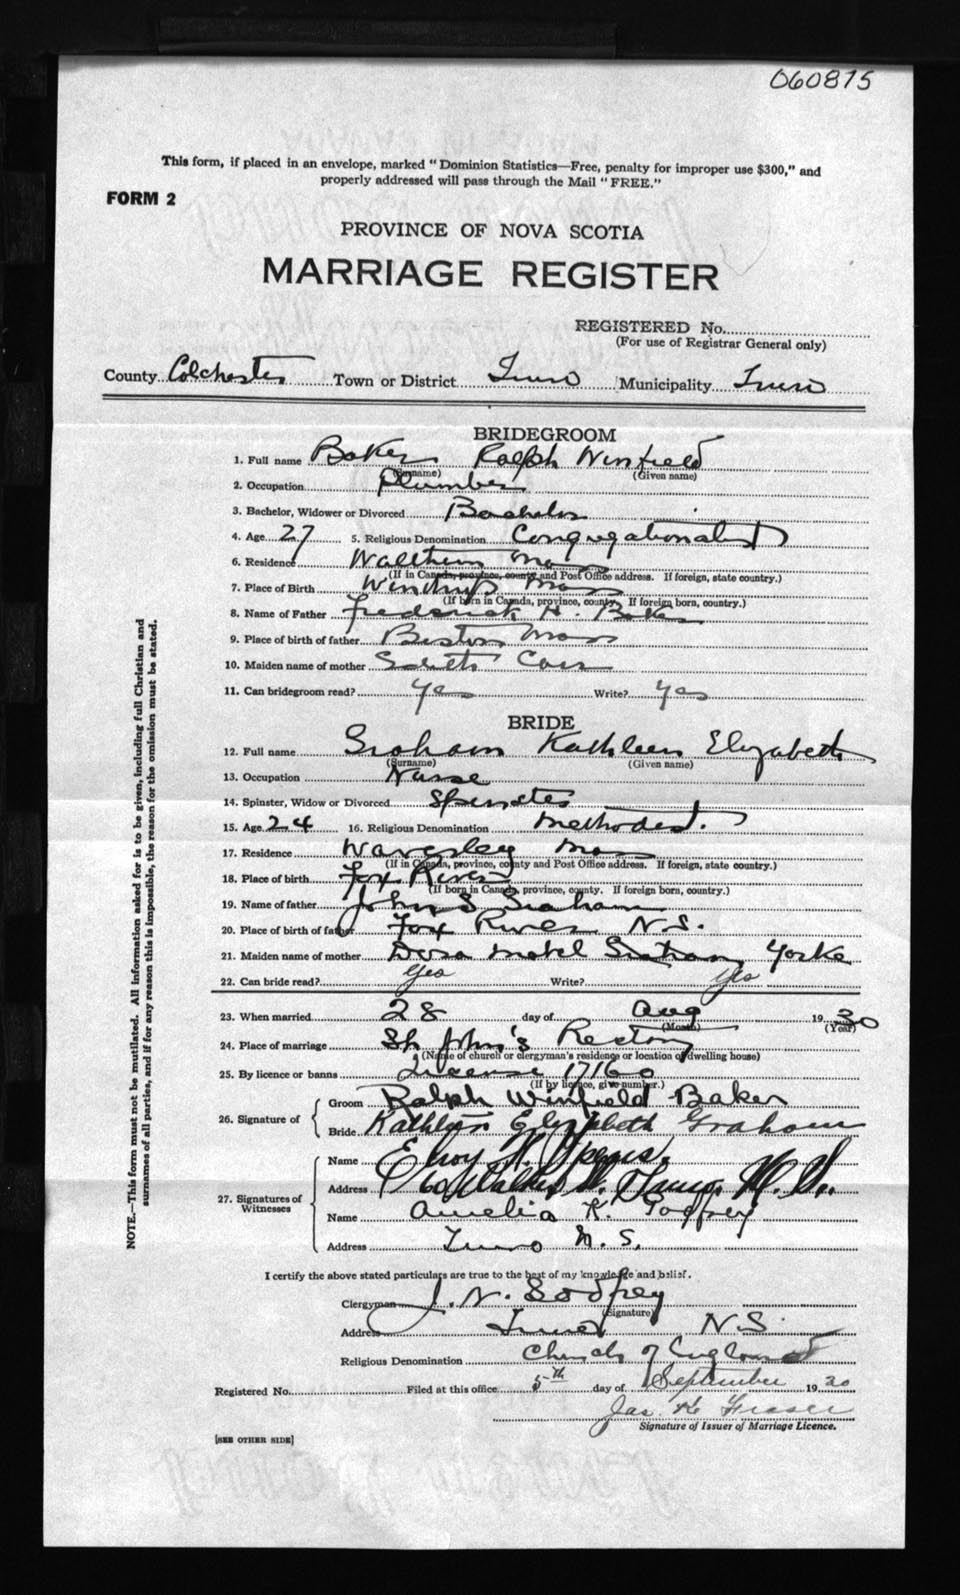 060875
This form, if placed in an envelope, marked "Dominion Statistics—Free, penalty for improper use $300," and
properly addressed will pass through the Mail "FREE."
FORM 2
PROVINCE OF NOVA SCOTIA
MARRIAGE REGISTER
REGISTERED No.
(For use of Registrar General only)
County Colchester Town or District Truro Municipality Truro
BRIDEGROOM
1. Full name Baker Ralph Winfield
(Surname) (Given name)
2. Occupation Plumber
3. Bachelor, Widower or Divorced Bachelor
4. Age 27 5. Religious Denomination Congregationalist
6. Residence Waltham Mass
(If in Canada, province, county and Post Office address. If foreign, state country.)
7. Place of Birth Winthrop Mass
(If born in Canada, province, county. If foreign born, country.)
8. Name of Father Frederick H. Baker
9. Place of birth of father Boston Mass
10. Maiden name of mother
11. Can bridegroom read? yes Write? yes
BRIDE
12. Full name Graham Kathleen Elizabeth
(Surname) (Given name)
13. Occupation Nurse
14. Spinster, Widow or Divorced Spinster
15. Age 24 16. Religious Denomination Methodist.
17. Residence Waverley Mass
(If in Canada, province, county and Post Office address. If foreign, state country.)
18. Place of birth Fox River
(If born in Canada, province, county. If foreign born, country.)
19. Name of father John S Graham
20. Place of birth of father Fox River N.S.
21. Maiden name of mother Dora Mabel Graham Yorke
22. Can bride read? Yes Write? Yes
23. When married 28 day of Aug 19 30
(Month) (Year)
24. Place of marriage St John's Rectory
(Name of church or clergyman's residence or location of dwelling house)
25. By licence or banns License 17160
(If by licence, give number.)
26. Signature of Groom Ralph Winfield Baker
Bride Kathleen Elizabeth Graham
27. Signatures of Witnesses
Name Elroy H.
Address Walker St. Truro, N.S.
Name Amelia K. Godfrey
Address Truro N.S.
I certify the above stated particulars are true to the best of my knowledge and belief.
Clergyman J. N. Godfrey
(Signature)
Address Truro N.S.
Religious Denomination Church of England
Registered No. Filed at this office 5th day of September 19 30
Jas. K Fraser
Signature of Issuer of Marriage Licence.
[SEE OTHER SIDE]
NOTE.—This form must not be mutilated. All information asked for is to be given, including full Christian and
surnames of all parties, and if for any reason this is impossible, the reason for the omission must be stated.